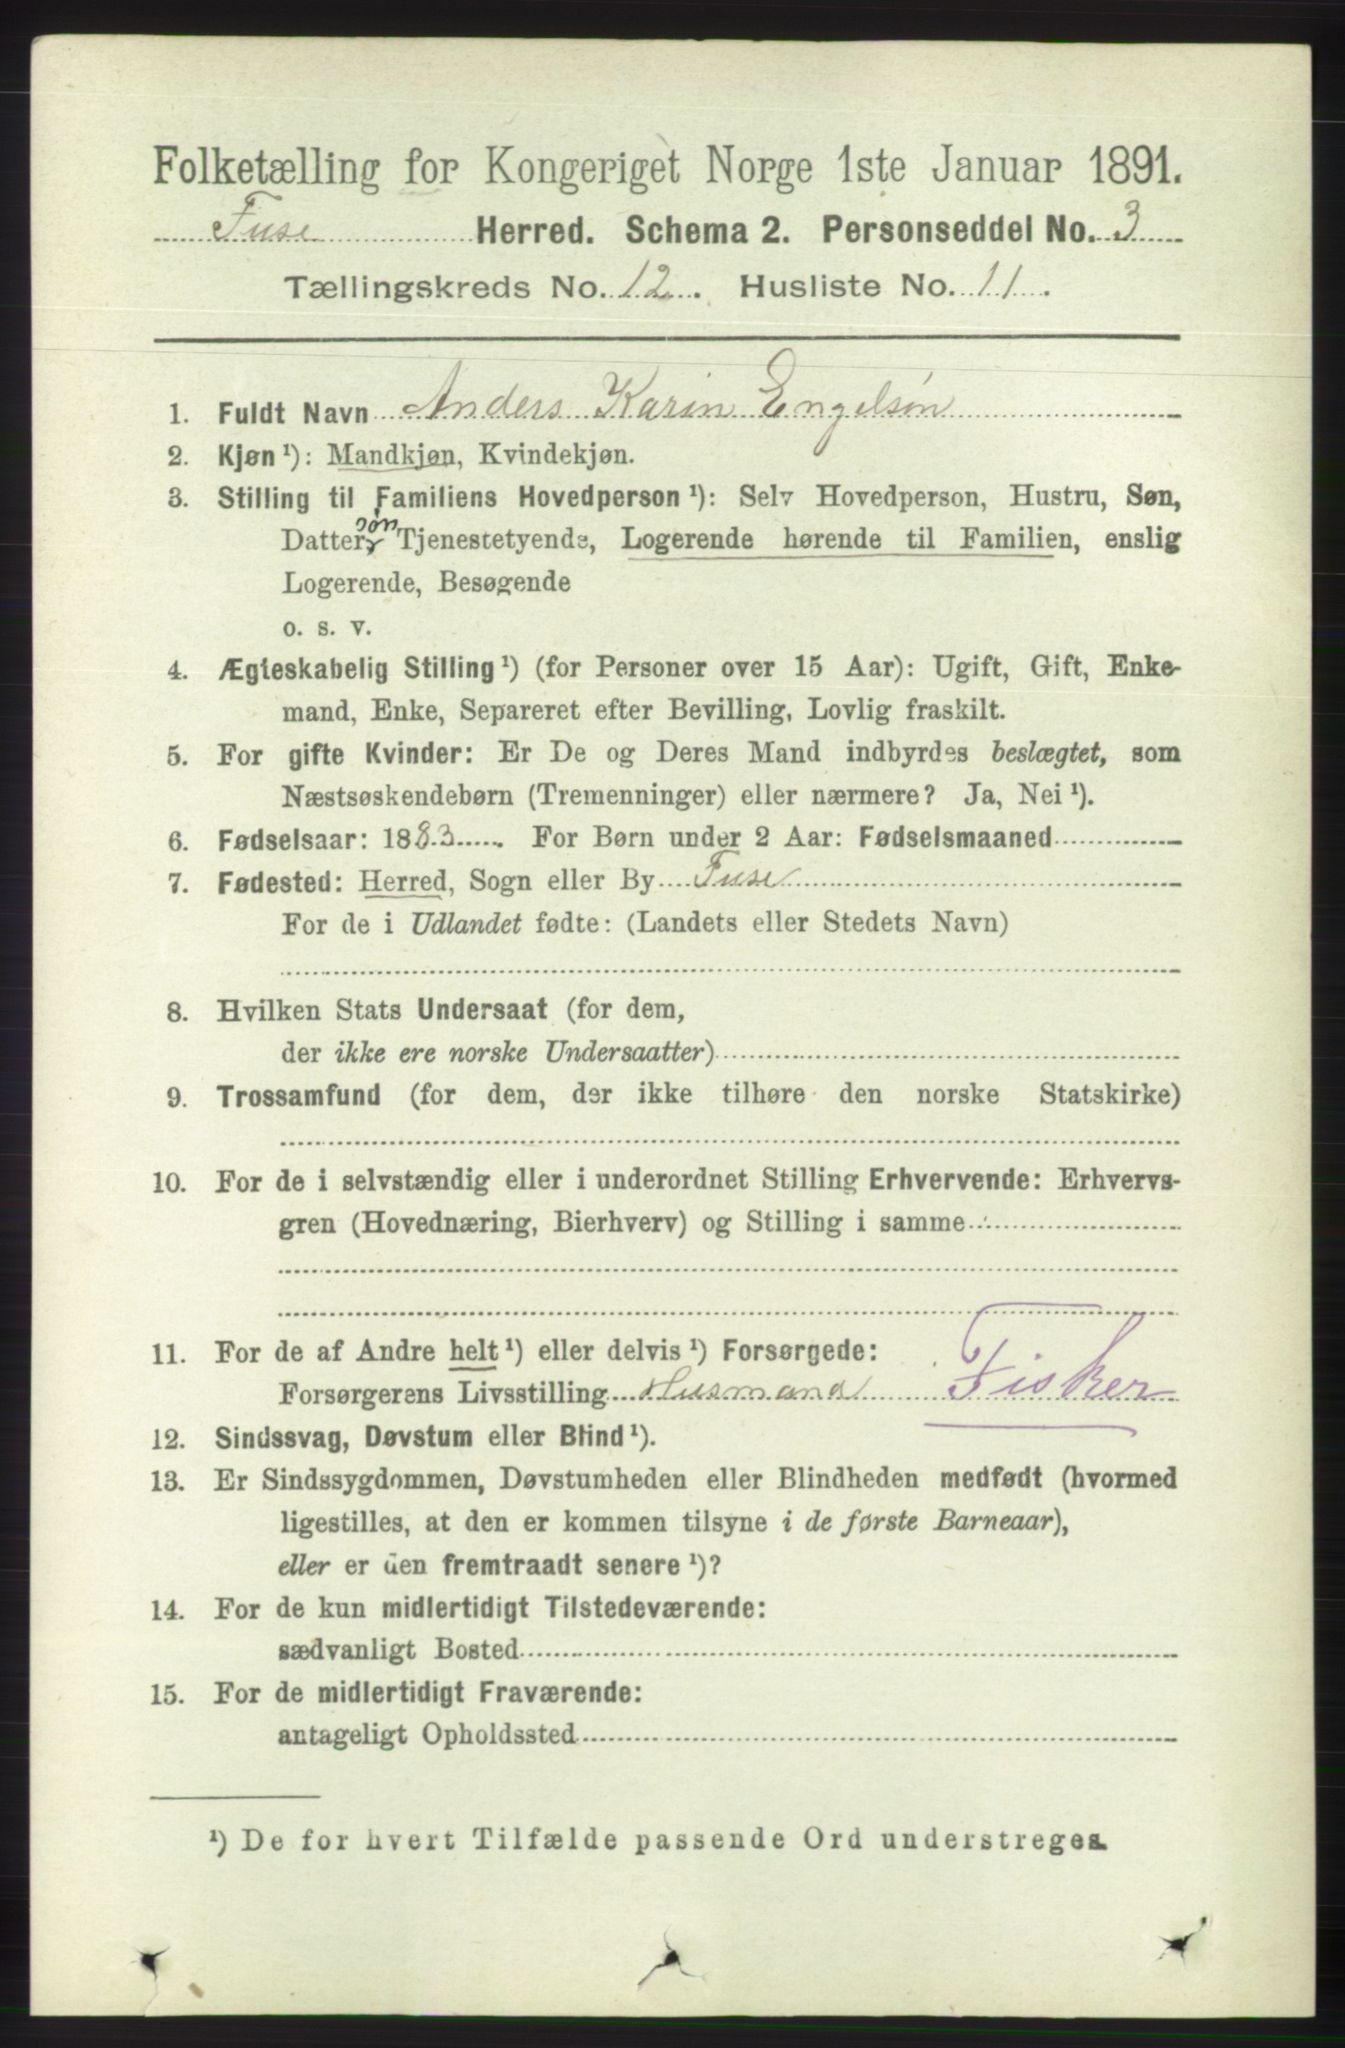 Folketælling for Kongeriget Norge 1ste Januar 1891.
Fuse Herred. Schema 2. Personseddel No. 3
Tællingskreds No. 12. Husliste No. 11.
1. Fuldt Navn Anders Karin Engelsøn
2. Kjøn¹): Mandkjøn, Kvindekjøn.
3. Stilling til Familiens Hovedperson¹): Selv Hovedperson, Hustru, Søn,
søn
Datter, Tjenestetyende, Logerende hørende til Familien, enslig
Logerende, Besøgende
o. s. v.
4. Ægteskabelig Stilling¹) (for Personer over 15 Aar): Ugift, Gift, Enke-
mand, Enke, Separeret efter Bevilling, Lovlig fraskilt.
5. For gifte Kvinder: Er De og Deres Mand indbyrdes beslægtet, som
Næstsøskendebørn (Tremenninger) eller nærmere? Ja, Nei¹).
6. Fødselsaar: 1883. For Børn under 2 Aar: Fødselsmaaned
7. Fødested: Herred, Sogn eller By Fuse
For de i Udlandet fødte: (Landets eller Stedets Navn)
8. Hvilken Stats Undersaat (for dem,
der ikke ere norske Undersaatter)
9. Trossamfund (for dem, der ikke tilhøre den norske Statskirke)
10. For de i selvstændig eller i underordnet Stilling Erhvervende: Erhvervs-
gren (Hovednæring, Bierhverv) og Stilling i samme
11. For de af Andre helt¹) eller delvis¹) Forsørgede:
Forsørgerens Livsstilling Husmand Fisker
12. Sindssvag, Døvstum eller Blind¹).
13. Er Sindssygdommen, Døvstumheden eller Blindheden medfødt (hvormed
ligestilles, at den er kommen tilsyne i de første Barneaar),
eller er den fremtraadt senere¹)?
14. For de kun midlertidigt Tilstedeværende:
sædvanligt Bosted
15. For de midlertidigt Fraværende:
antageligt Opholdssted
¹) De for hvert Tilfælde passende Ord understreges.